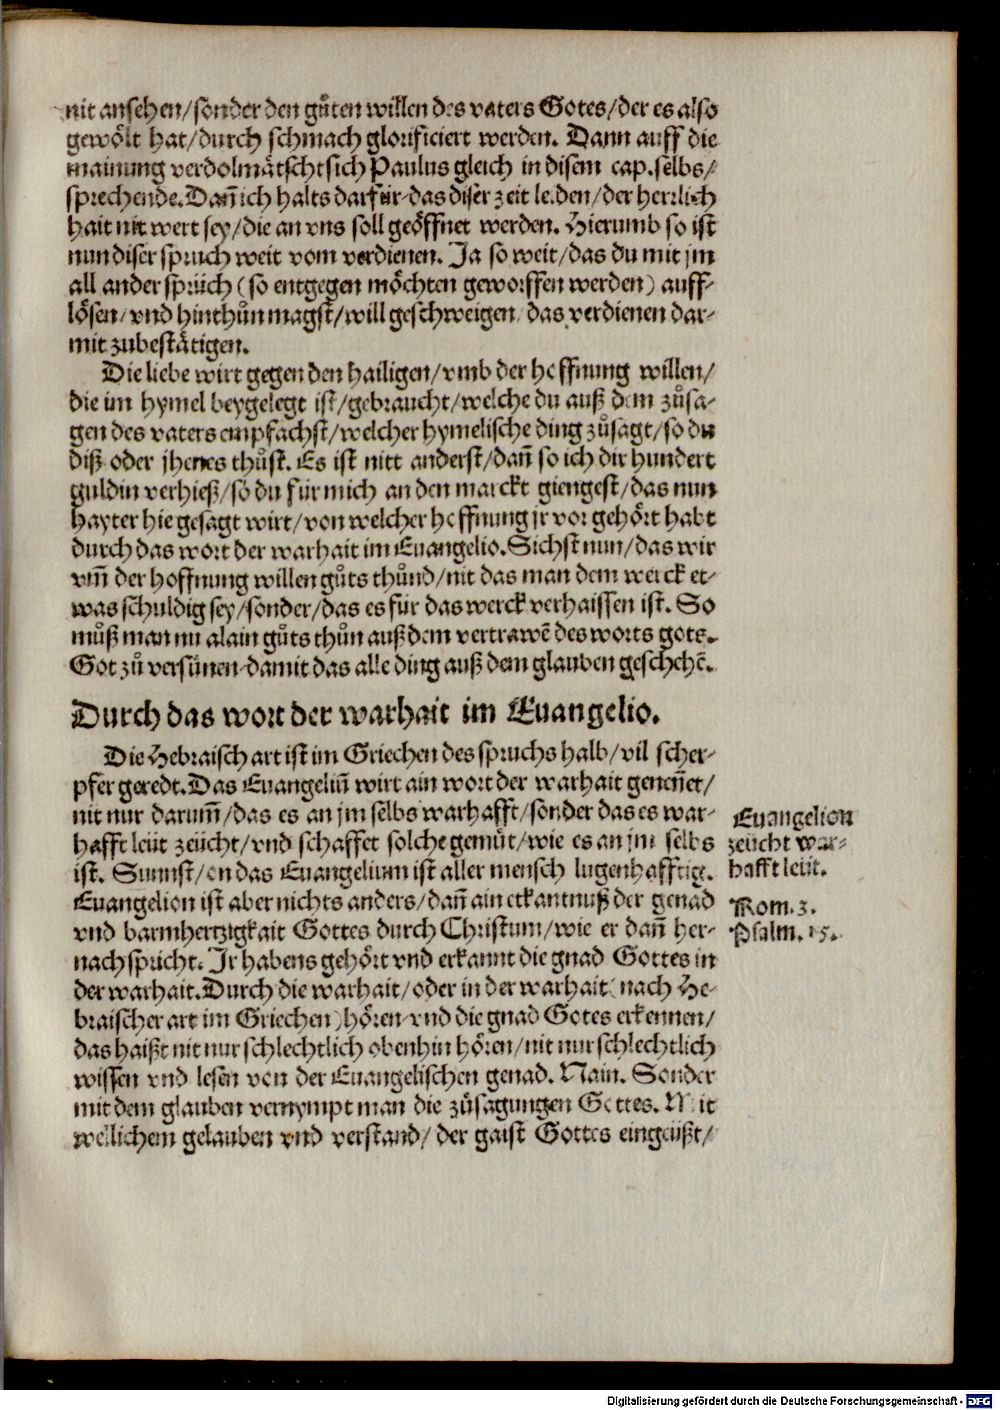 nit ansehen/sonder den guͦten willen des vaters Gotes/der es also
gewoͤlt hat/durch schmach glorificiert werden. Dann auff die
mainung verdolmaͤtscht sich Paulus gleich in disem cap. selbs/
sprechende. Dañ ich halts darfür/das diser zeit leiden/der herrlich
hait nit wert sey/die an vns soll geoͤffnet werden. Hierumb so ist
nun diser spruch weit vom verdienen. Ja so weit/das du mit jm
all ander sprüch (so entgegen moͤchten geworffen werden) auff-
loͤsen/vnd hinthuͦn magst/will geschweigen/das verdienen dar-
mit zubestaͤtigen.
Die liebe wirt gegen den hailigen/vmb der hoffnung willen/
die im hymel beygelegt ist/gebraucht/welche du auß dem zuͦsa-
gen des vaters empfachst/welcher hymelische ding zuͦsagt/so du
diß oder jhenes thuͦst. Es ist nitt anderst/dañ so ich dir hundert
guldin verhieß/so du für mich an den marckt giengest/das nun
hayter hie gesagt wirt/von welcher hoffnung jr vor gehoͤrt habt
durch das wort der warhait im Euangelio. Sichst nun/das wir
vm̃ der hoffnung willen guͦts thuͦnd/nit das man dem werck et-
was schuldig sey/sonder/das es für das werck verhaissen ist. So
muͦß man nu alain guͦts thuͦn auß dem vertrawẽ des worts gots.
Got zuͦ versünen/damit das alle ding auß dem glauben geschehẽ.
Durch das wort der warhait im Euangelio.
Die Hebraisch art ist im Griechen des spruchs halb/vil scher-
pfer geredt. Das Euangeliũ wirt ain wort der warhait geneñet/
nit nur darum̃/das es an jm selbs warhafft/sonder das es war-
hafft leüt zeücht/vnd schaffet solche gemuͤt/wie es an jm selbs
ist. Sunnst/on das Euangelium ist aller mensch lugenhafftig.
Euangelion ist aber nichts anders/dañ ain erkantnuß der genad
vnd barmhertzigkait Gottes durch Christum/wie er dañ her-
nach spricht. Jr habens gehoͤrt vnd erkannt die gnad Gottes in
der warhait. Durch die warhait/oder in der warhait (nach He-
braischer art im Griechen) hoͤren/vnd die gnad Gotes erkennen/
das haißt nit nur schlechtlich obenhin hoͤren/nit nur schlechtlich
wissen vnd lesen von der Euangelischen genad. Nain. Sonder
mit dem glauben vernympt man die zuͦsagungen Gottes. Mit
wellichem gelauben vnd verstand/der gaist Gottes eingeüßt/
Euangelion
zeücht war-
hafft leüt.
Rom. 3.
Psalm. 15.
Digitalisierung gefördert durch die Deutsche Forschungsgemeinschaft - DFG